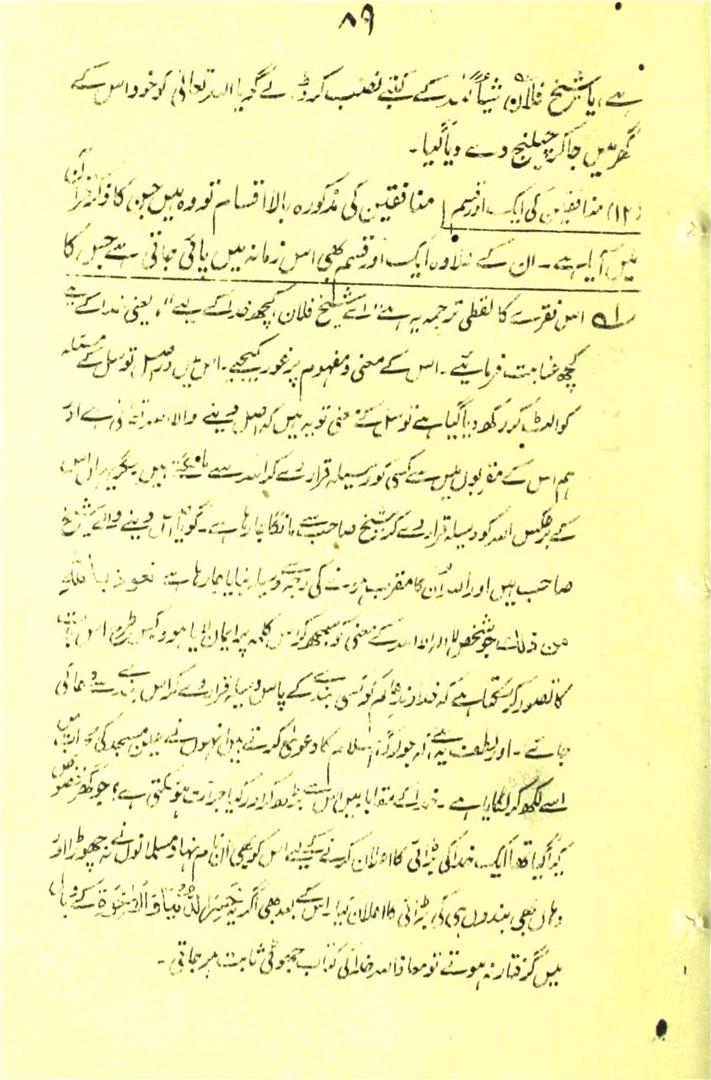 ۸۹
ہے، یا شیخ فلاں شیئاً للہ کے کتبے نصب کر کے گویا اللہ تعالیٰ کو خود اس کے
گھر میں جا کر چیلنج دے دیا گیا۔
(۱۲) منافقین کی ایک اور قسم منافقین کی مذکورہ بالا اقسام تو وہ ہیں جن کا ذکر قرآن
میں آیا ہے۔ ان کے علاوہ ایک اور قسم بھی اس زمانہ میں پائی جاتی ہے جس کا
لہ اس فقرے کا لفظی ترجمہ یہ ہے "اے شیخ فلاں کچھ خدا کے لیے"، یعنی خدا کے لیے
کچھ عنایت فرمائیے۔ اس کے معنی و مفہوم پر غور کیجیے۔ اس میں دراصل توسل کے مسئلہ
کو الٹ کر رکھ دیا گیا ہے توسل کے معنی تو یہ ہیں کہ اصل دینے والا اللہ تعالیٰ ہے اور
ہم اس کے مقربوں میں سے کسی کو وسیلہ قرار دے کر اللہ سے مانگتے ہیں مگر یہاں اس
کے برعکس اللہ کو وسیلہ قرار دے کر شیخ صاحب سے مانگا جا رہا ہے۔ گویا اصل دینے والے شیخ
صاحب ہیں اور اللہ ان کا مقرب ہونے کی وجہ سے وسیلہ بنایا جا رہا ہے نعوذ باللہ
من ذلک جو شخص لا الہ الا اللہ کے معنی کو سمجھ کر اس کلمہ پر ایمان لایا ہو وہ کس طرح اس بات
کا تصور کر سکتا ہے کہ خداوند عالم کو کسی بندے کے پاس وسیلہ قرار دے کر اس بندے سے دعا کی
جائے۔ اور لطف یہ ہے کہ جو لوگ اسلام کا دعویٰ کرتے ہیں انہوں نے عین مسجد کی محراب میں
اسے لکھ کر لگایا ہے۔ خدا کے مقابلہ میں اس سے بڑھ کر اور کیا جرأت ہو سکتی ہے؟ جو گھر مخصوص
کیا گیا تھا ایک خدا کی بڑائی کا اعلان کرنے کے لیے اس کو بھی ان نام نہاد مسلمانوں نے نہ چھوڑا اور
وہاں بھی بندوں ہی کی بڑائی کا اعلان کیا۔ اس کے بعد بھی اگر یہ خسر الدنیا والآخرۃ کے وبال
میں گرفتار نہ ہوتے تو معاذ اللہ خدا کی کتاب جھوٹی ثابت ہو جاتی۔